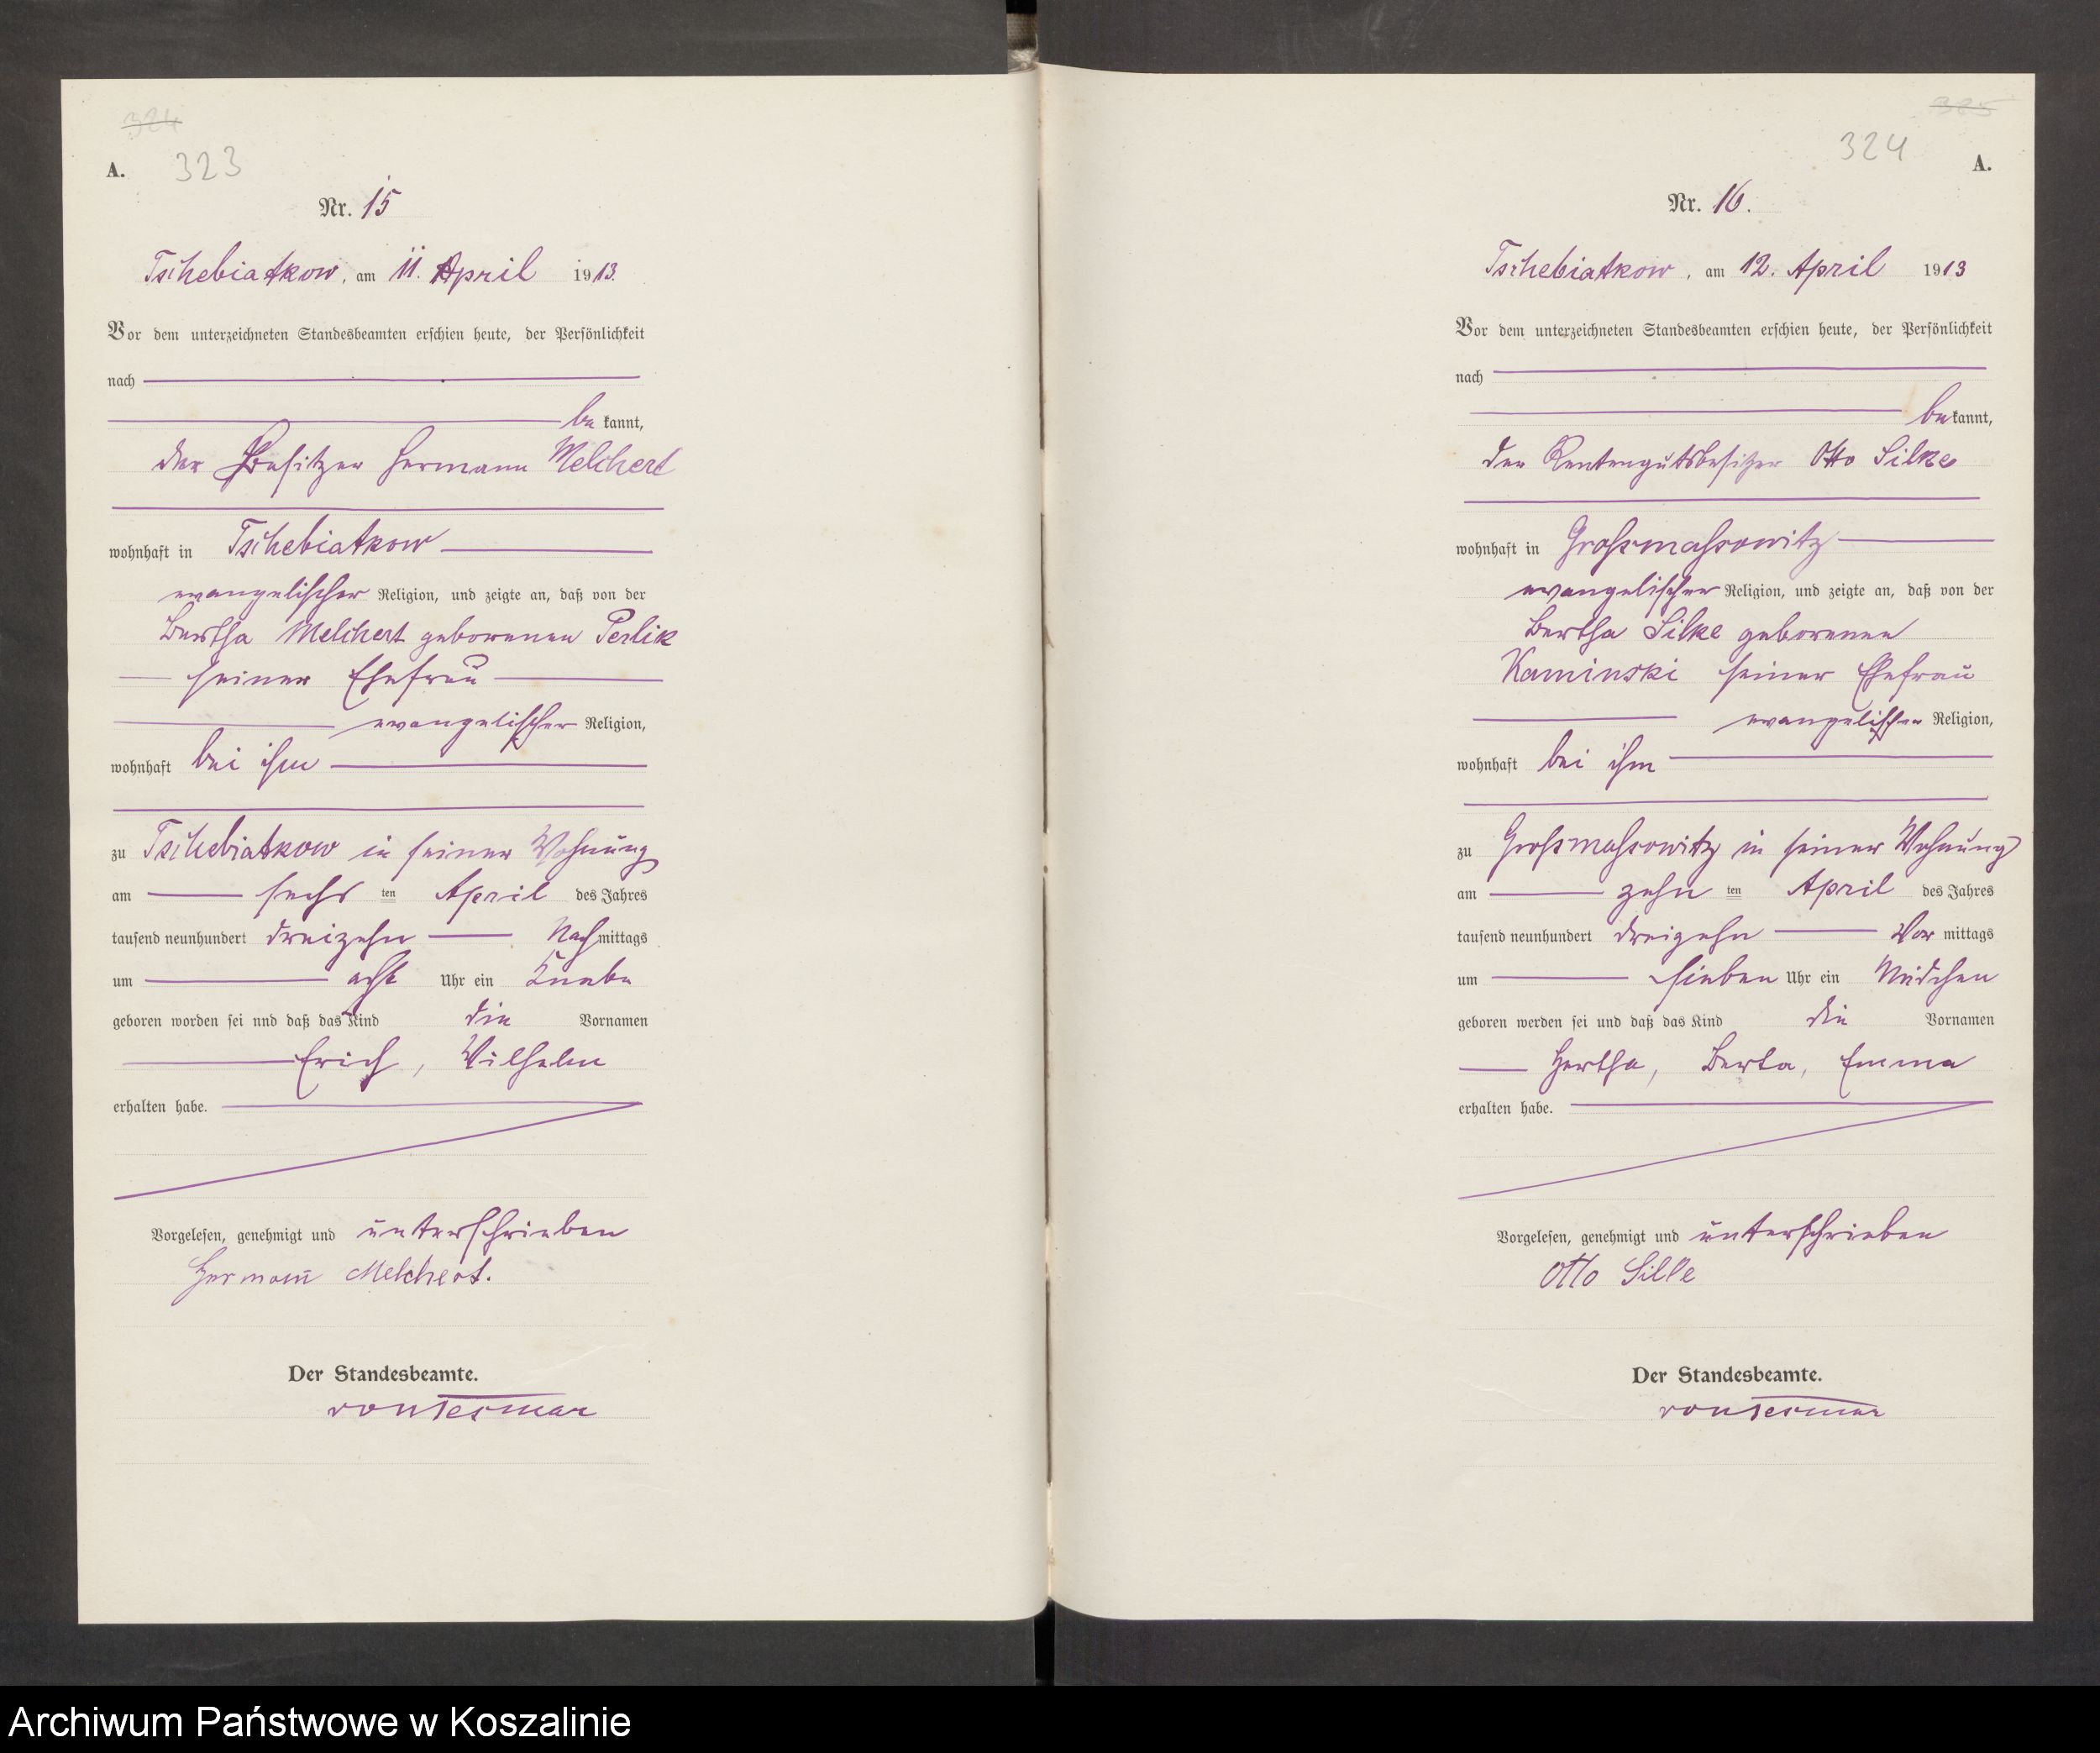 324
A. 323
Nr. 15
Tschebiatkow, am 11. April 1913.
Vor dem unterzeichneten Standesbeamten erschien heute, der Persönlichkeit
nach
be kannt,
der Besitzer Hermann Melchert
wohnhaft in Tschebiatkow
evangelischer Religion, und zeigte an, daß von der
Bertha Melchert geborenen Perlik
seiner Ehefrau
evangelischer Religion,
wohnhaft bei ihm
zu Tschebiatkow in seiner Wohnung
am sechs ten April des Jahres
tausend neunhundert dreizehn Nachmittags
um acht Uhr ein Knabe
geboren worden sei und daß das Kind die Vornamen
Erich, Wilhelm
erhalten habe.
Vorgelesen, genehmigt und unterschrieben
Hermann Melchert.
Der Standesbeamte.
von Tesmar
325
324 A.
Nr. 16.
Tschebiatkow, am 12. April 1913
Vor dem unterzeichneten Standesbeamten erschien heute, der Persönlichkeit
nach
bekannt,
der Rentengutsbesitzer Otto Silke
wohnhaft in Grossmassowitz
evangelischer Religion, und zeigte an, daß von der
Bertha Silke geborenen
Kaminski seiner Ehefrau
evangelischer Religion,
wohnhaft bei ihm
zu Grossmassowitz in seiner Wohnung
am zehn ten April des Jahres
tausend neunhundert dreizehn Vor mittags
um sieben Uhr ein Mädchen
geboren worden sei und daß das Kind die Vornamen
Hertha, Berta, Emma
erhalten habe.
Vorgelesen, genehmigt und unterschrieben
Otto Silke
Der Standesbeamte.
von Tesmar
Archiwum Państwowe w Koszalinie